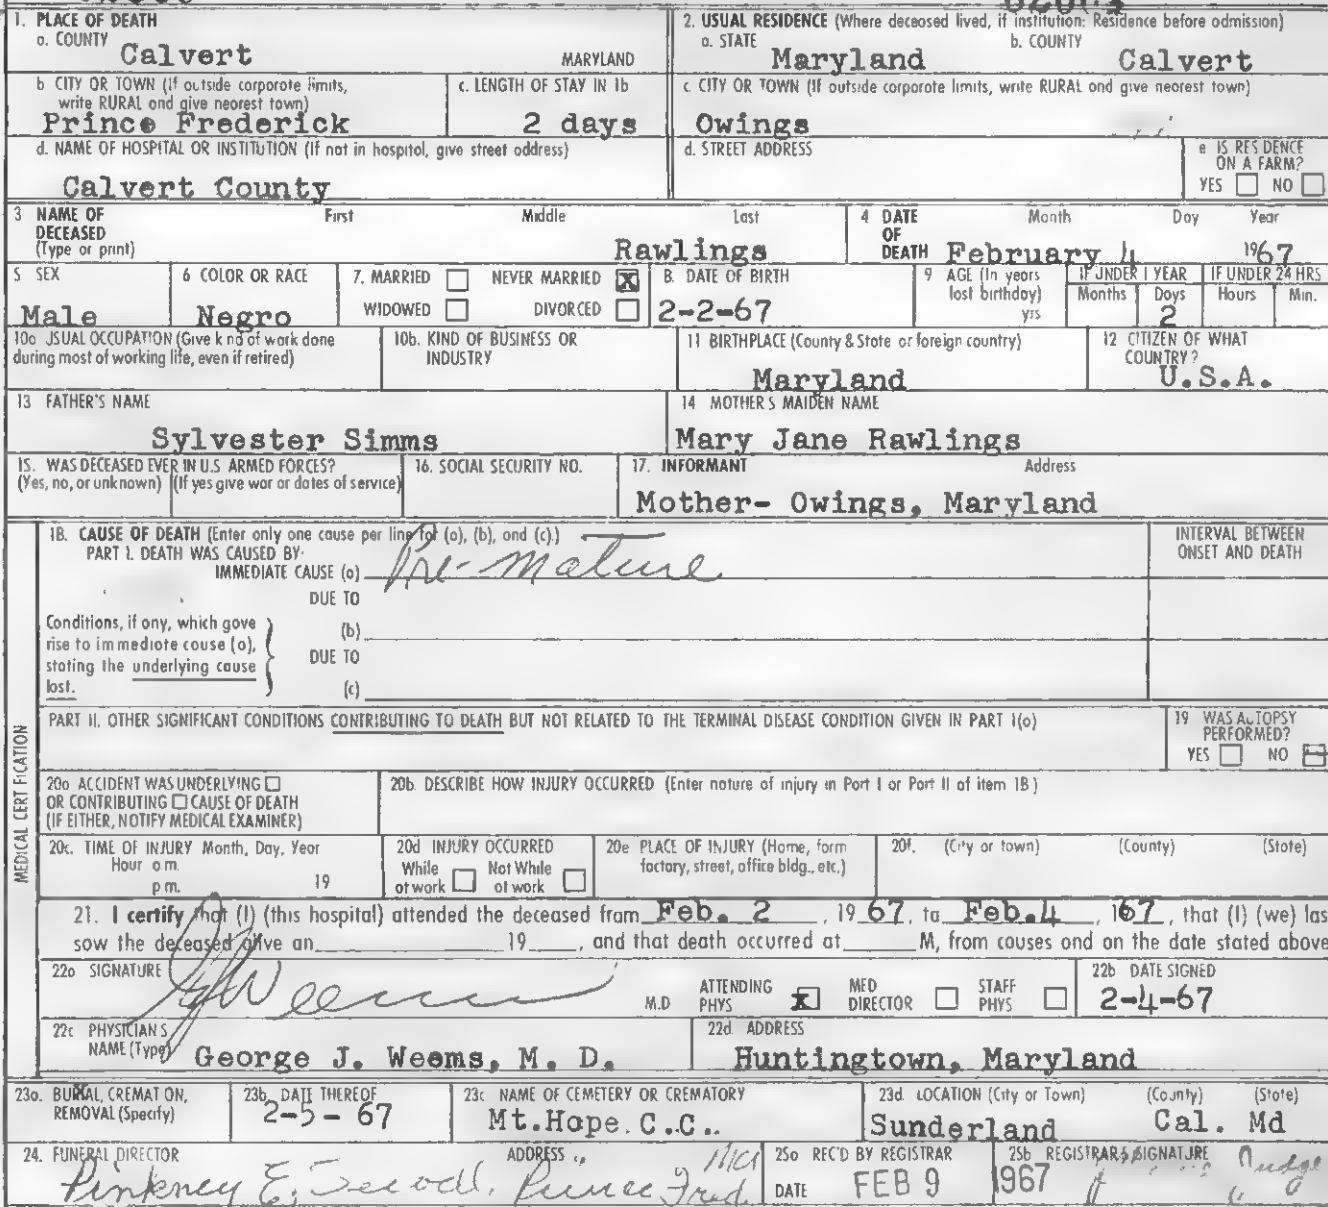 1. PLACE OF DEATH
a. COUNTY
Calvert
MARYLAND
2. USUAL RESIDENCE (Where deceased lived, if institution: Residence before admission)
a. STATE
Maryland
b. COUNTY
Calvert
b CITY OR TOWN (If outside corporate limits,
write RURAL and give nearest town)
Prince Frederick
c. LENGTH OF STAY IN 1b
2 days
c. CITY OR TOWN (If outside corporate limits, write RURAL and give nearest town)
Owings
d. NAME OF HOSPITAL OR INSTITUTION (If not in hospital, give street address)
Calvert County
d. STREET ADDRESS
e IS RESIDENCE
ON A FARM?
YES NO
3 NAME OF
DECEASED
(Type or print)
First Middle Last
Rawlings
4 DATE
OF
DEATH
Month Day Year
February 4 1967
5 SEX
Male
6 COLOR OR RACE
Negro
7. MARRIED NEVER MARRIED X
WIDOWED DIVORCED
8. DATE OF BIRTH
2-2-67
9 AGE (In years
last birthday)
yrs
IF UNDER 1 YEAR
Months Days
2
IF UNDER 24 HRS
Hours Min.
10a USUAL OCCUPATION (Give kind of work done
during most of working life, even if retired)
10b. KIND OF BUSINESS OR
INDUSTRY
11 BIRTHPLACE (County & State or foreign country)
Maryland
12 CITIZEN OF WHAT
COUNTRY?
U.S.A.
13 FATHER'S NAME
Sylvester Simms
14 MOTHER'S MAIDEN NAME
Mary Jane Rawlings
15. WAS DECEASED EVER IN U.S ARMED FORCES?
(Yes, no, or unknown) (If yes give war or dates of service)
16. SOCIAL SECURITY NO.
17. INFORMANT Address
Mother- Owings, Maryland
MEDICAL CERTIFICATION
18. CAUSE OF DEATH (Enter only one cause per line for (a), (b), and (c).)
PART I. DEATH WAS CAUSED BY:
IMMEDIATE CAUSE (a) Pre-mature
INTERVAL BETWEEN
ONSET AND DEATH
DUE TO
Conditions, if any, which gave
rise to immediate cause (a),
stating the underlying cause
last.
(b)
DUE TO
(c)
PART II. OTHER SIGNIFICANT CONDITIONS CONTRIBUTING TO DEATH BUT NOT RELATED TO THE TERMINAL DISEASE CONDITION GIVEN IN PART I(a)
19 WAS AUTOPSY
PERFORMED?
YES NO
20a ACCIDENT WAS UNDERLYING
OR CONTRIBUTING CAUSE OF DEATH
(IF EITHER, NOTIFY MEDICAL EXAMINER)
20b. DESCRIBE HOW INJURY OCCURRED (Enter nature of injury in Part I or Part II of item 18)
20c. TIME OF INJURY Month, Day, Year
Hour a.m.
p m. 19
20d INJURY OCCURRED
While Not While
at work at work
20e PLACE OF INJURY (Home, farm
factory, street, office bldg., etc.)
20f. (City or town) (County) (State)
21. I certify that (I) (this hospital) attended the deceased from Feb. 2, 1967, to Feb.4, 167, that (I) (we) las
saw the deceased alive an 19 , and that death occurred at M, from causes and on the date stated above
22a SIGNATURE
GJWeems M.D
ATTENDING
PHYS X
MED
DIRECTOR
STAFF
PHYS
22b DATE SIGNED
2-4-67
22c PHYSICIANS
NAME (Type)
George J. Weems, M. D.
22d ADDRESS
Huntingtown, Maryland
23a. BURIAL, CREMATION,
REMOVAL (Specify)
23b. DATE THEREOF
2-5-67
23c NAME OF CEMETERY OR CREMATORY
Mt.Hope C.C.
23d. LOCATION (City or Town) (County) (State)
Sunderland Cal. Md
24. FUNERAL DIRECTOR ADDRESS
Pinkney E. Sewell, Prince Fred. Md
25a REC'D BY REGISTRAR
DATE FEB 9 1967
25b REGISTRARS SIGNATURE
Judge